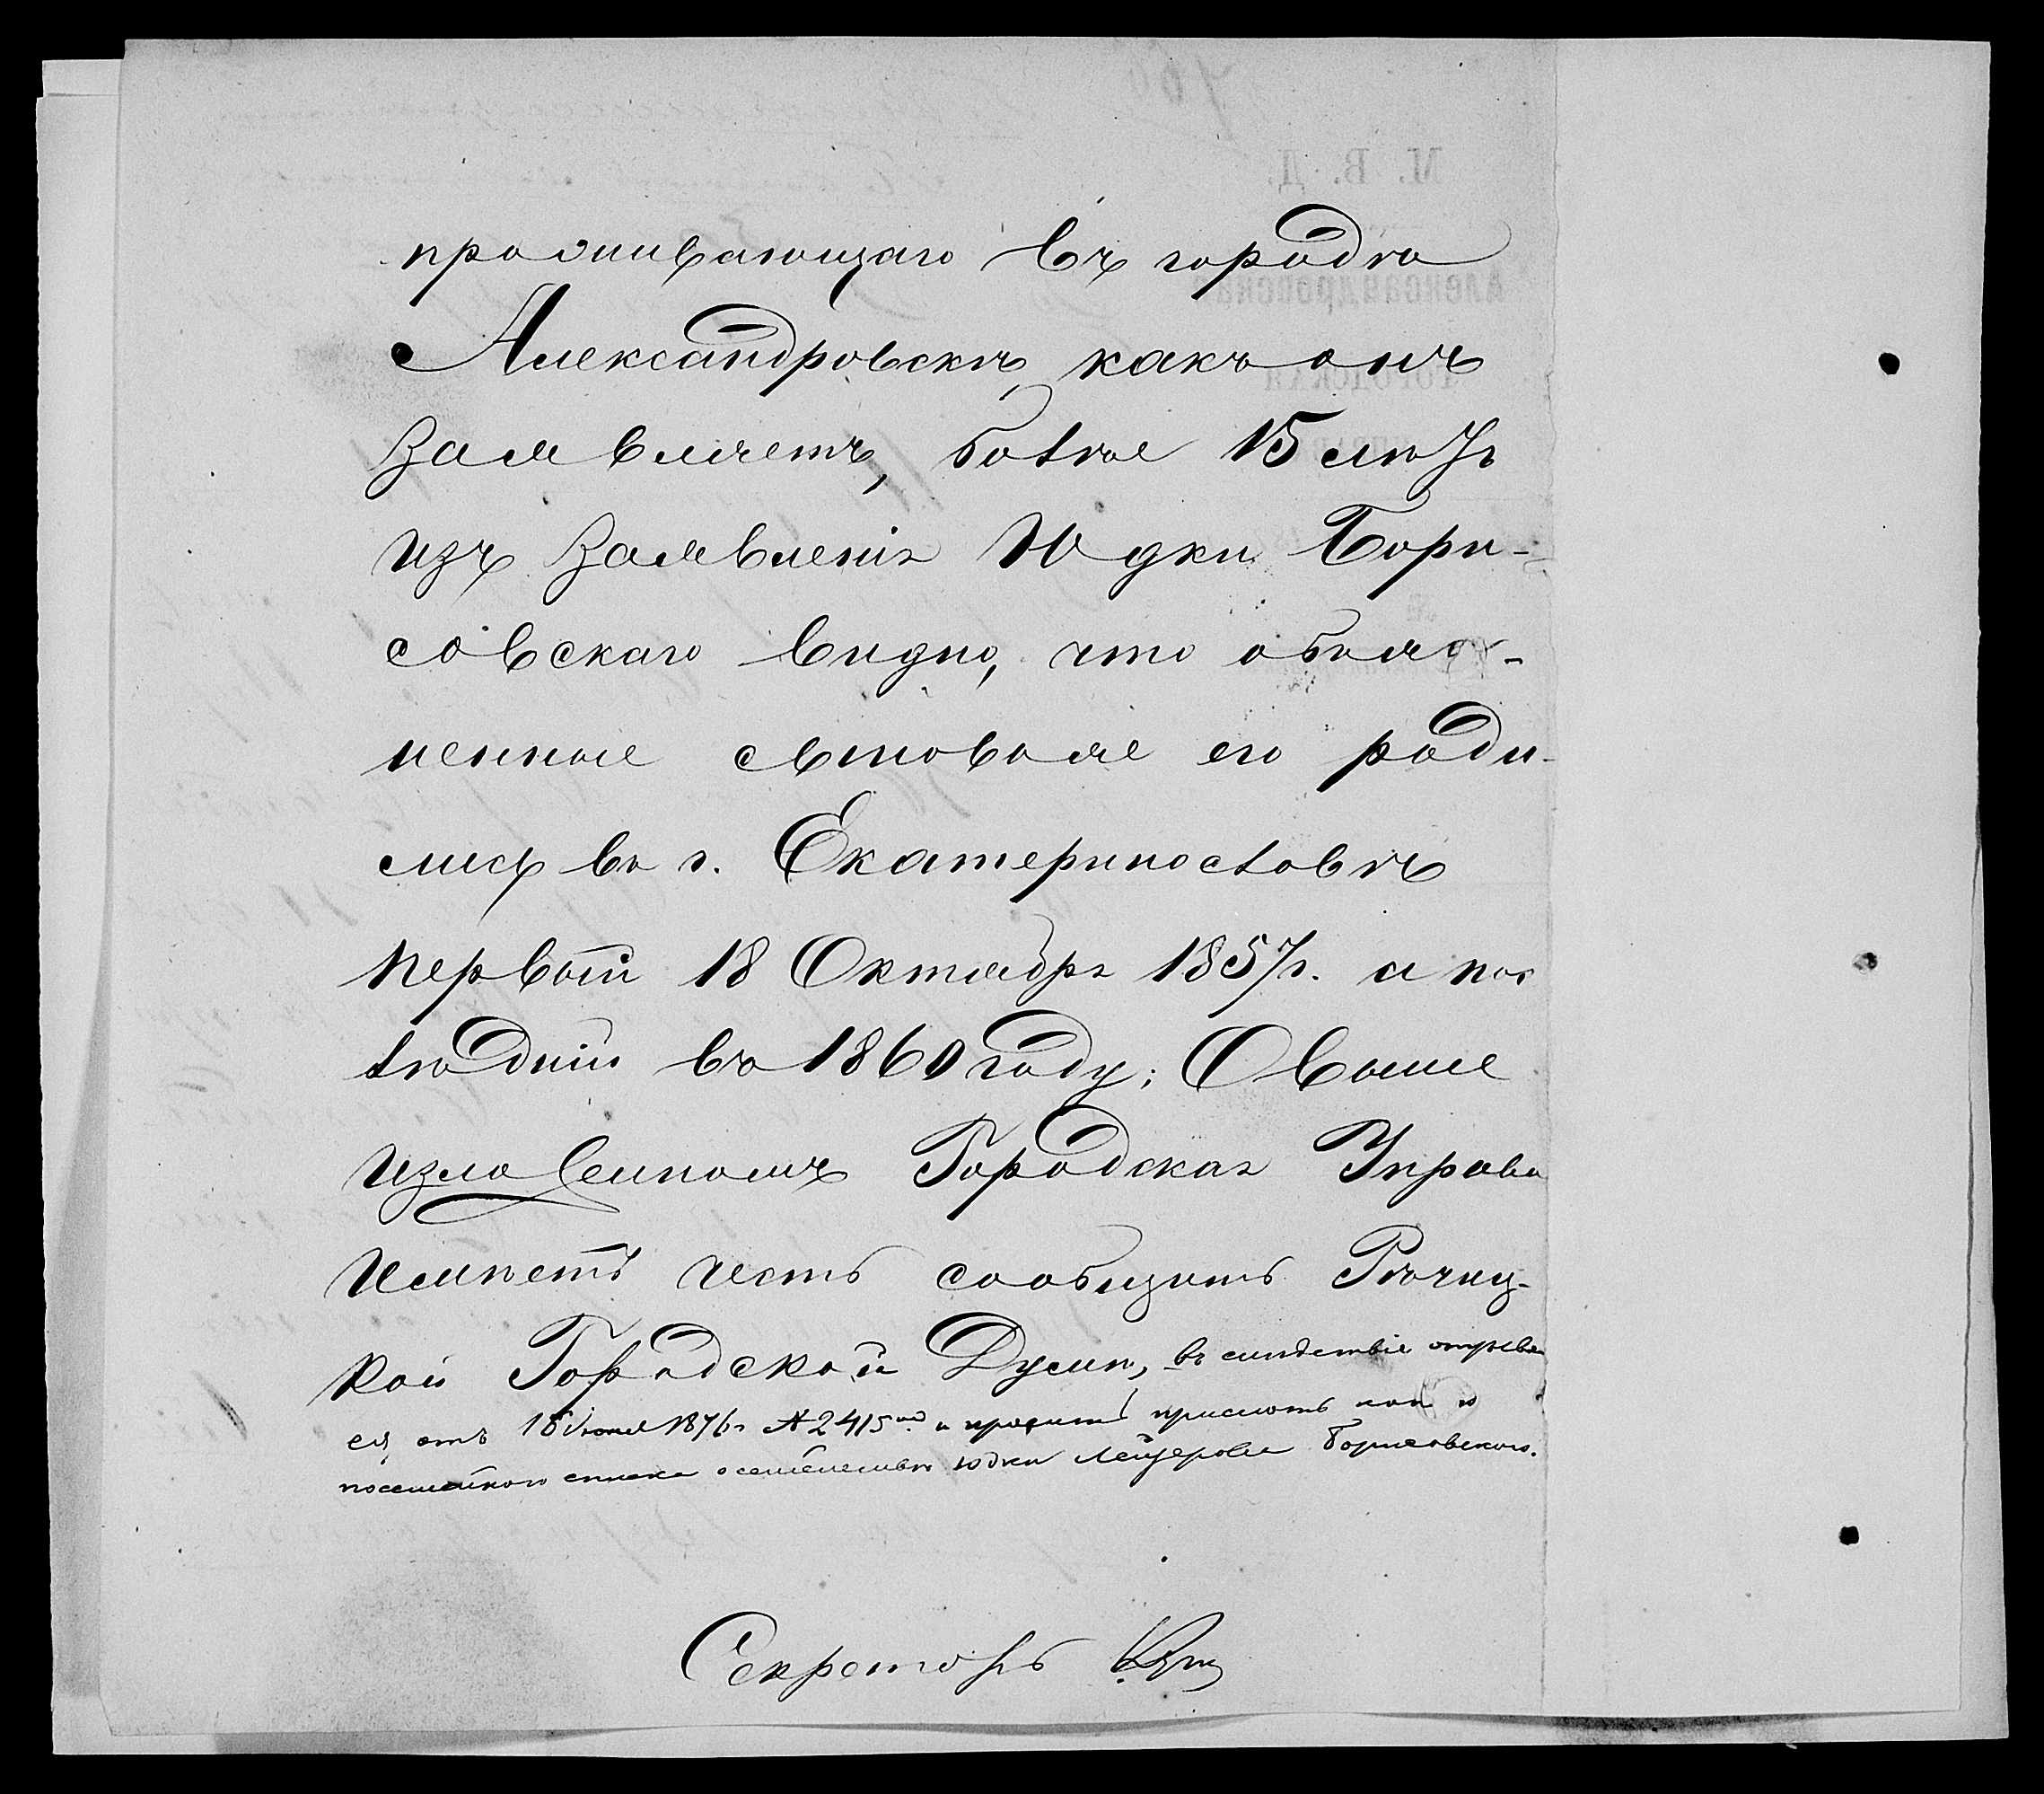 проживающаго въ городѣ
Александровскѣ какъ онъ
заявляетъ, болѣе 15 лѣтъ
изъ заявленія Юдки Бори-
совскаго видно, что обозна-
ченные сыновья его роди-
лись въ г. Екатеринославѣ
первый 18 Октября 1857 г. а пос
лѣдній въ 1860 году; О выше
изложенномъ Городская Управа
имѣетъ честь сообщить Рѣчиц-
кой Городской Думѣ, въ слѣдствіе
ея отъ 18 1876 г № 2415 и проситъ прислать
посемейного списка о семействѣ Юдки Лейзерова Борисовскаго.
Секретарь
М. В. Д.
Александровская
Городская